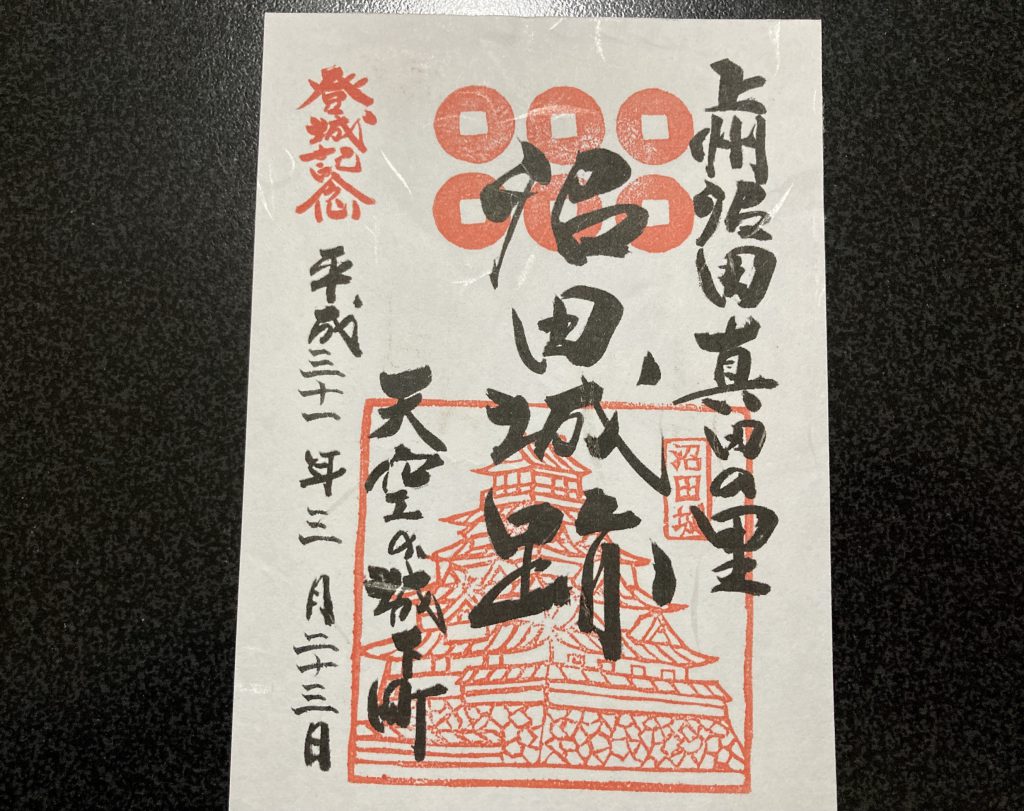 上州沼田 真田の里
沼田城
沼田城跡
天空の城下町
登城記念
平成三十一年三月二十三日